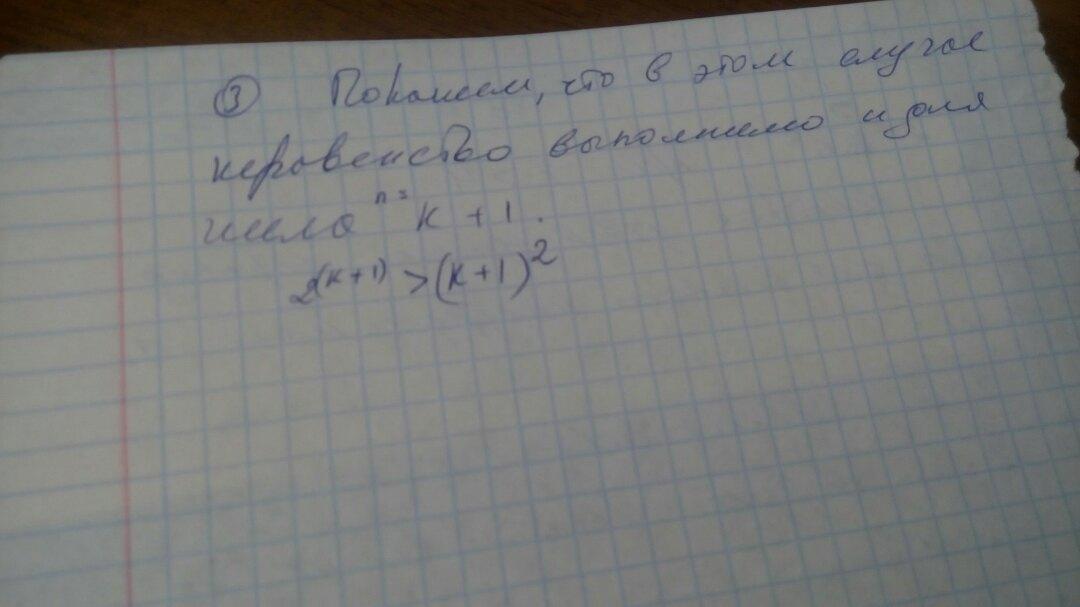 ③ Покажем, что в этом случае
неравенство выполнимо и для
число n= k + 1.
2^(k+1) > (k+1)^2